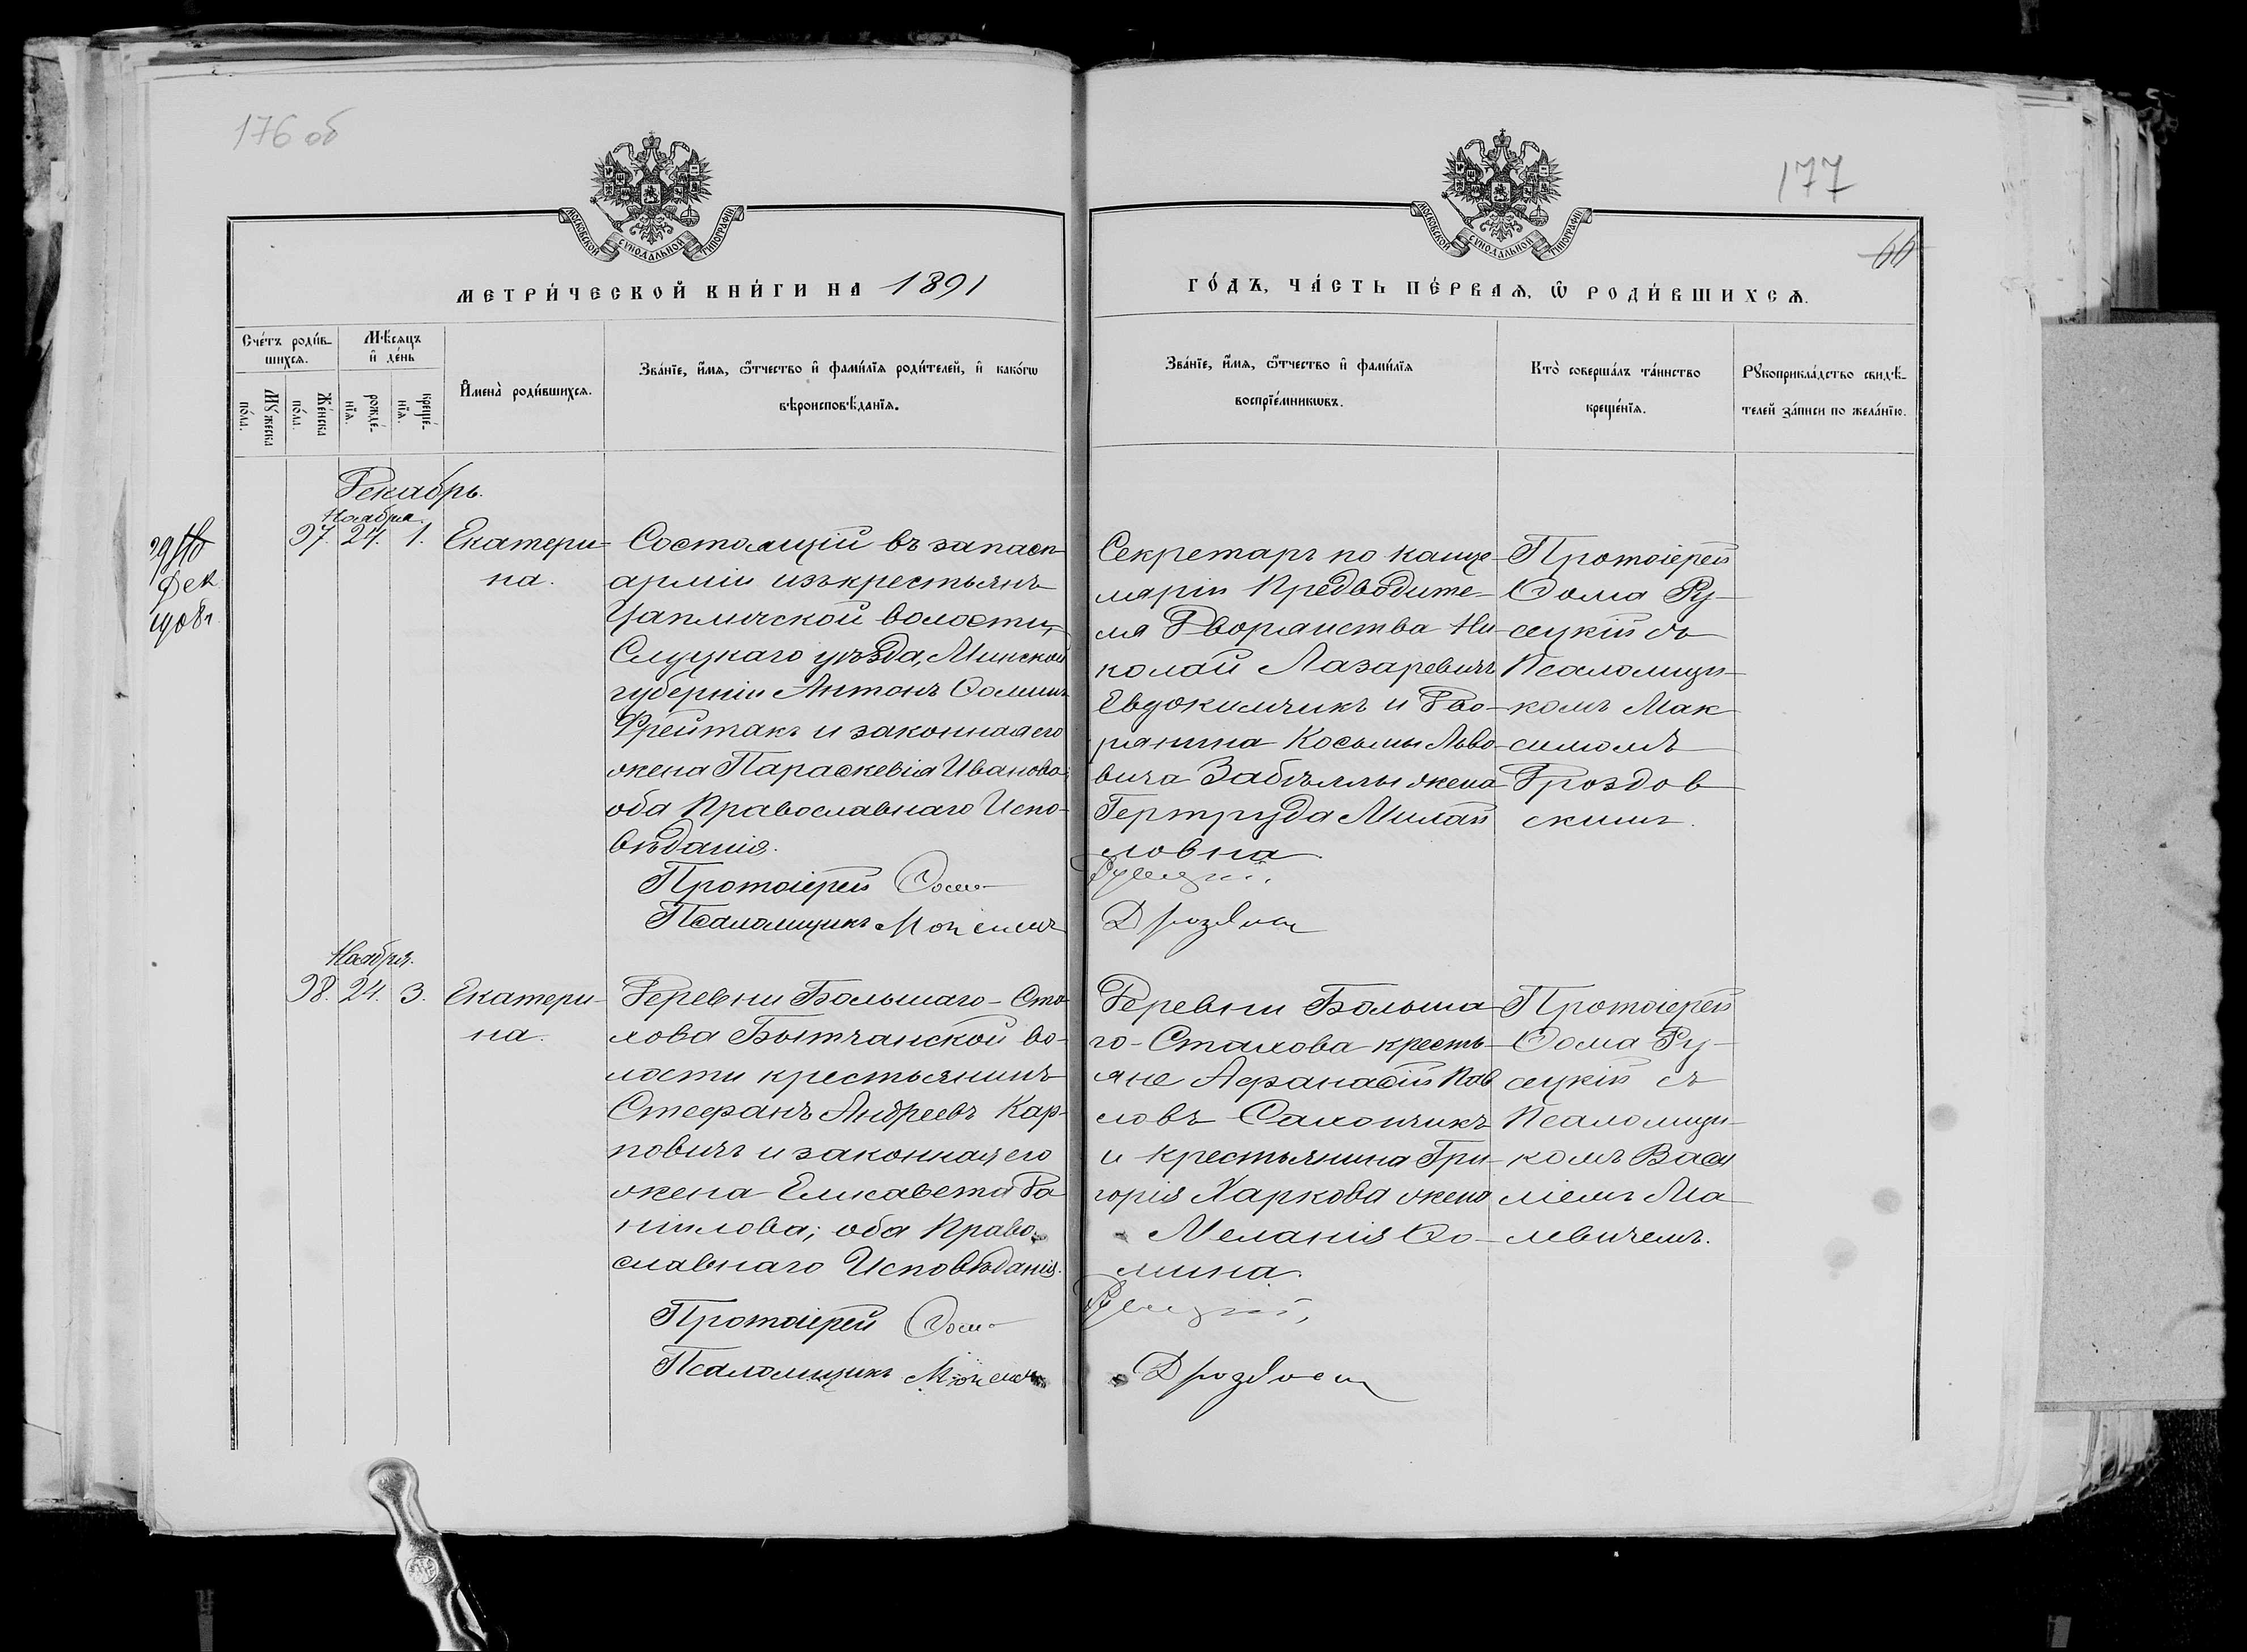 176 об
177
66
МОСКОВСКОЙ СѴНОДАЛЬНОЙ ТИПОГРАФІИ
МОСКОВСКОЙ СѴНОДАЛЬНОЙ ТИПОГРАФІИ
МЕТРИ́ЧЕСКОЙ КНИ́ГИ НА 1891
ГО́ДЪ, ЧА́СТЬ ПЕ́РВАѦ, Ѽ РОДИ́ВШИХСѦ.
Сче́тъ роди́в-
шихсѧ.
Мꙋжеска
по́ла.
Же́нска
по́ла.
Мѣ́сѧцъ
и҆ де́нь
рожде́-
нїѧ.
креще́-
нїѧ.
И҆мена̀ роди́вшихсѧ.
Зва́нїе, и҆́мѧ, ѻ҆́тчество и҆ фами́лїѧ роди́телей, и҆ како́гѡ
вѣроисповѣ́данїѧ.
Зва́нїе, и҆́мѧ, ѻ҆́тчество и҆ фами́лїѧ
воспрїе́мникѡвъ.
Кто̀ соверша́лъ та́инство
креще́нїѧ.
Рꙋкоприкла́дство свидѣ́-
телей за́писи по жела́нїю.
Декабрь.
Ноября
97. 24. 1. Екатери-
на.
Дек
1908г
Состоящій въ запасѣ
арміи изъ крестьянъ
Цапличской волости,
Слуцкаго уѣзда, Минской
губерніи Антонъ Ѳоминъ
Фрейтакъ и законная его
жена Параскевія Иванова;
оба Православнаго Испо-
вѣданія.
Протоіерей Ѳома
Псаломщикъ Максимъ
Секретарь по канце-
ляріи Предводите-
ля Дворянства Ни-
колай Лазаревичъ
Евдокимчикъ и Дво-
рянина Косьмы Льво-
вича Забѣллы жена
Гертруда Михай
ловна
Русецкій,
Дроздовск
Протоіерей
Ѳома Ру-
сецкій съ
Псаломщи-
комъ Мак
симомъ
Дроздов
скимъ.
Ноября.
98. 24. 3. Екатери-
на.
Деревни Большаго-Ста-
хова Бытчанской во-
лости крестьянинъ
Стефанъ Андреевъ Кар-
повичъ и законная его
жена Елисавета Да
ніилова; оба Право-
славнаго Исповѣданія.
Протоіерей Ѳома
Псаломщикъ Максимъ
Деревни Больша-
го-Стахова кресть-
яне Аѳанасій Пав
ловъ Сахончикъ
и крестьянина Гри-
горія Харкова жена
Меланія Ѳо-
мина.
Русецкій,
Дроздовск
Протоіерей
Ѳома Ру-
сецкій съ
Псаломщи-
комъ Васи
ліемъ Ма
левичемъ.